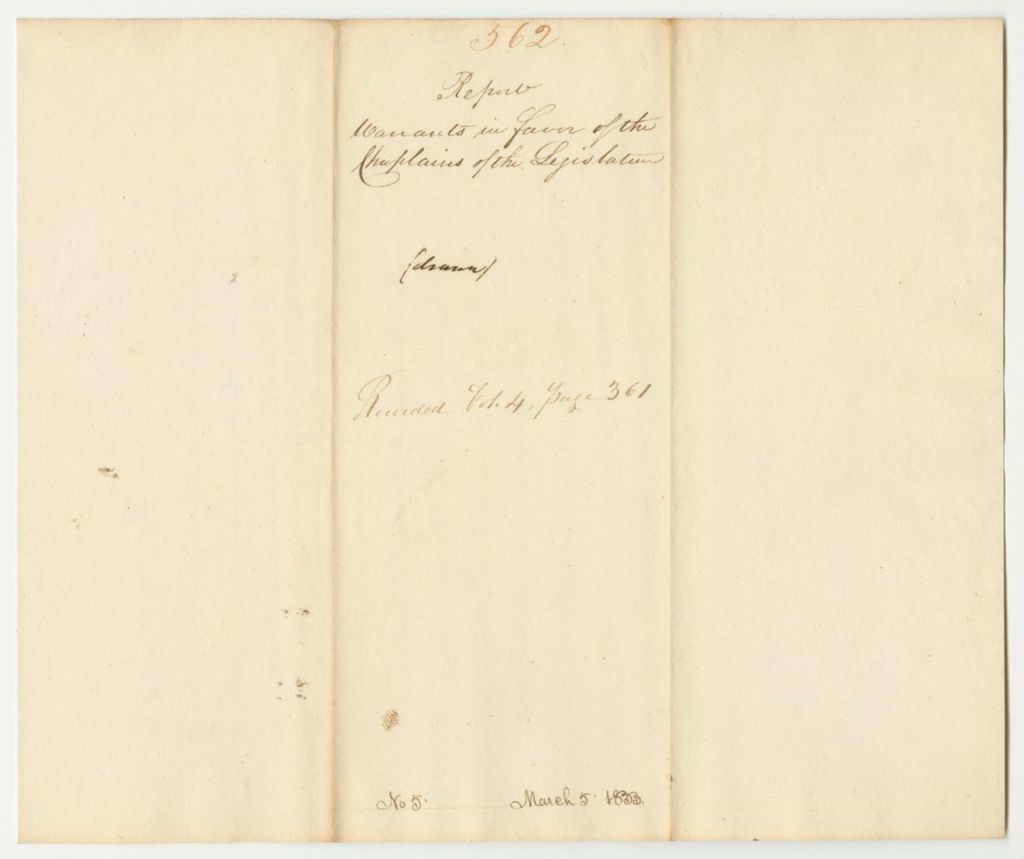 562.
Report
Warrants in favor of the
Chaplains of the Legislature
(drawn)
Recorded Vol. 4, page 361
No 5. March 5. 1833.